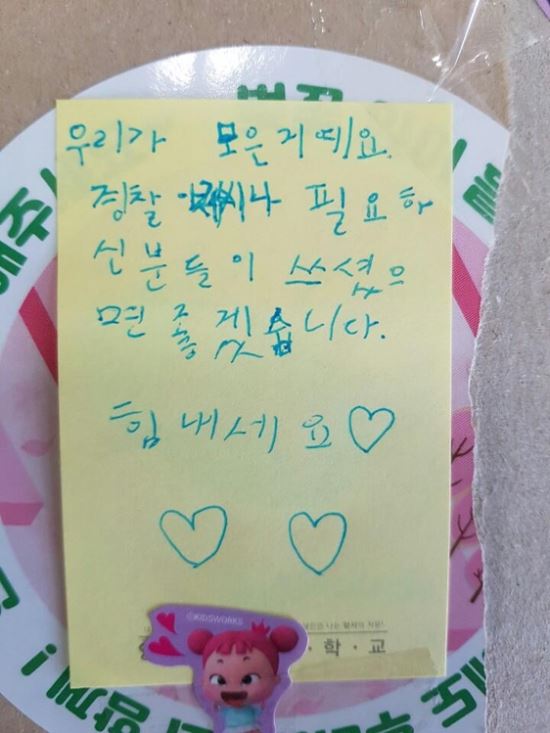 우리가 모은거예요.
경찰 아저씨나 필요하
신분들이 쓰셨으
면 좋겠습니다.
힘내세요♡
♡ ♡
©KIDSWORKS
학·교